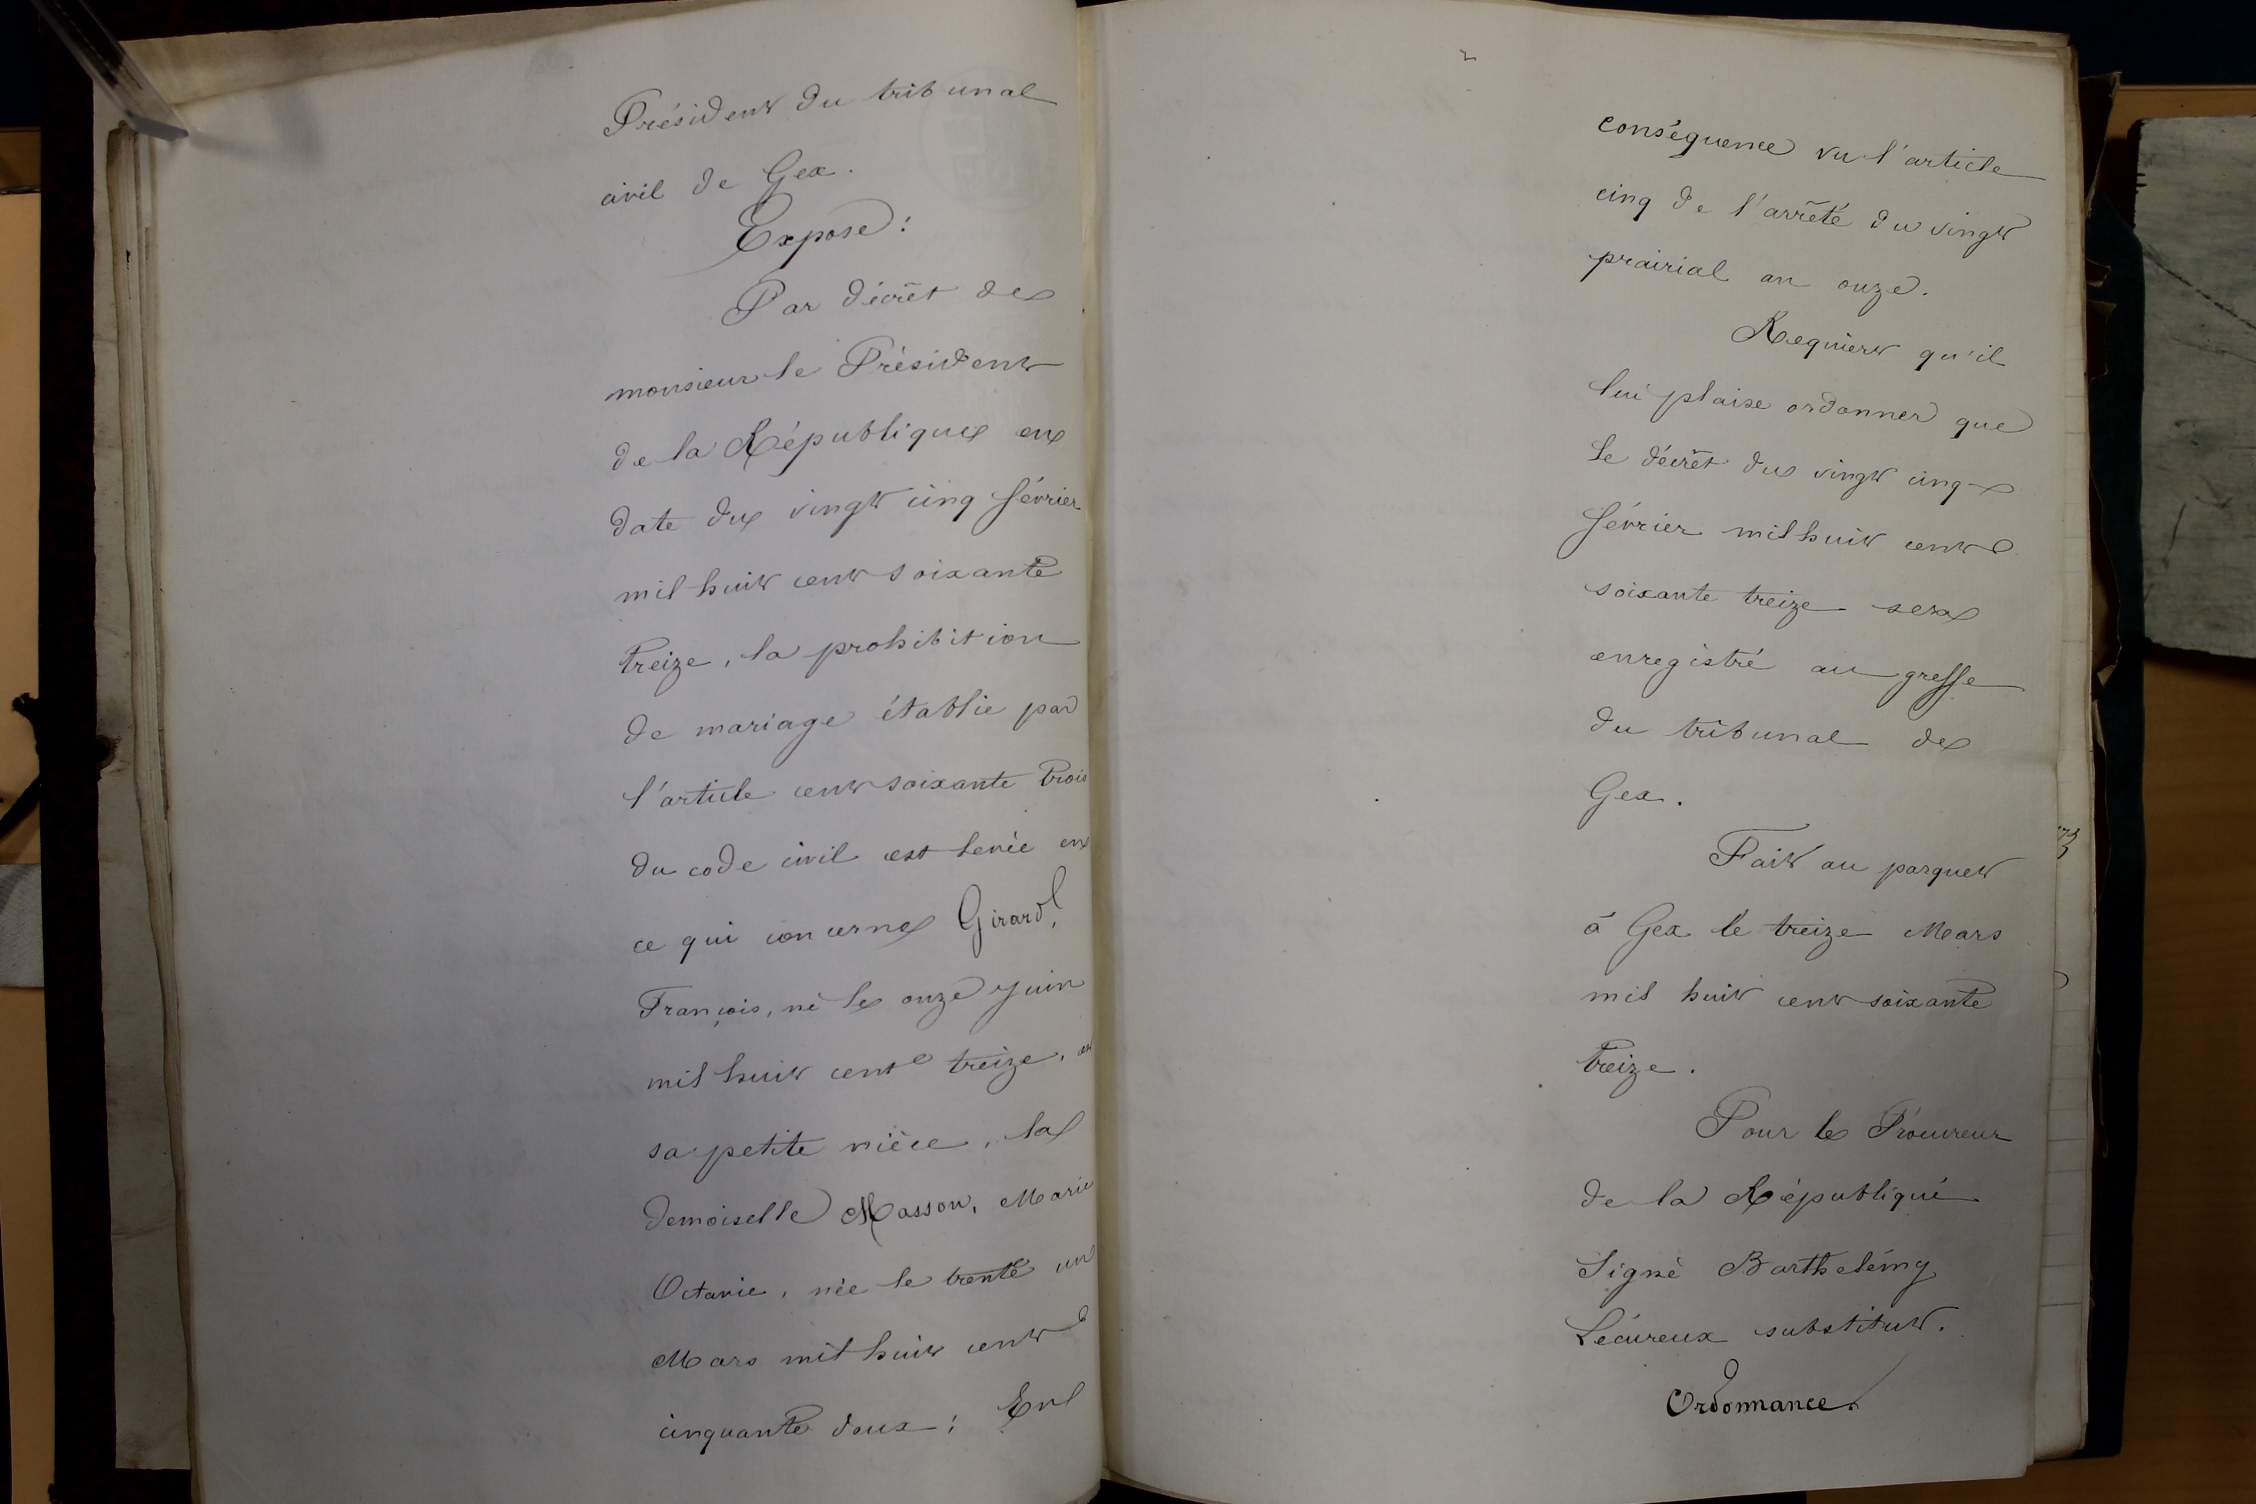 Président du tribunal
civil de Gex.
Expose :
Par décret de
monsieur le Président
de la République en
date du vingt cinq février
mil huit cent soixante
treize, la prohibition
de mariage établie par
l'article cent soixante trois
du code civil est levée en
ce qui concerne Girard,
François, né le onze Juin
mil huit cent treize, et
sa petite nièce, la
demoiselle Masson, Marie
Octavie, née le trente un
Mars mil huit cent
cinquante deux ; En
2
conséquence vu l'article
cinq de l'arrêté du vingt
prairial an onze.
Requiert qu'il
lui plaise ordonner que
le décret du vingt cinq
février mil huit cent
soixante treize sera
enregistré au greffe
du tribunal de
Gex.
Fait au parquet
à Gex le treize Mars
mil huit cent soixante
treize.
Pour le Procureur
de la République
Signé Barthelémy
Lécureux substitut.
Ordonnance.